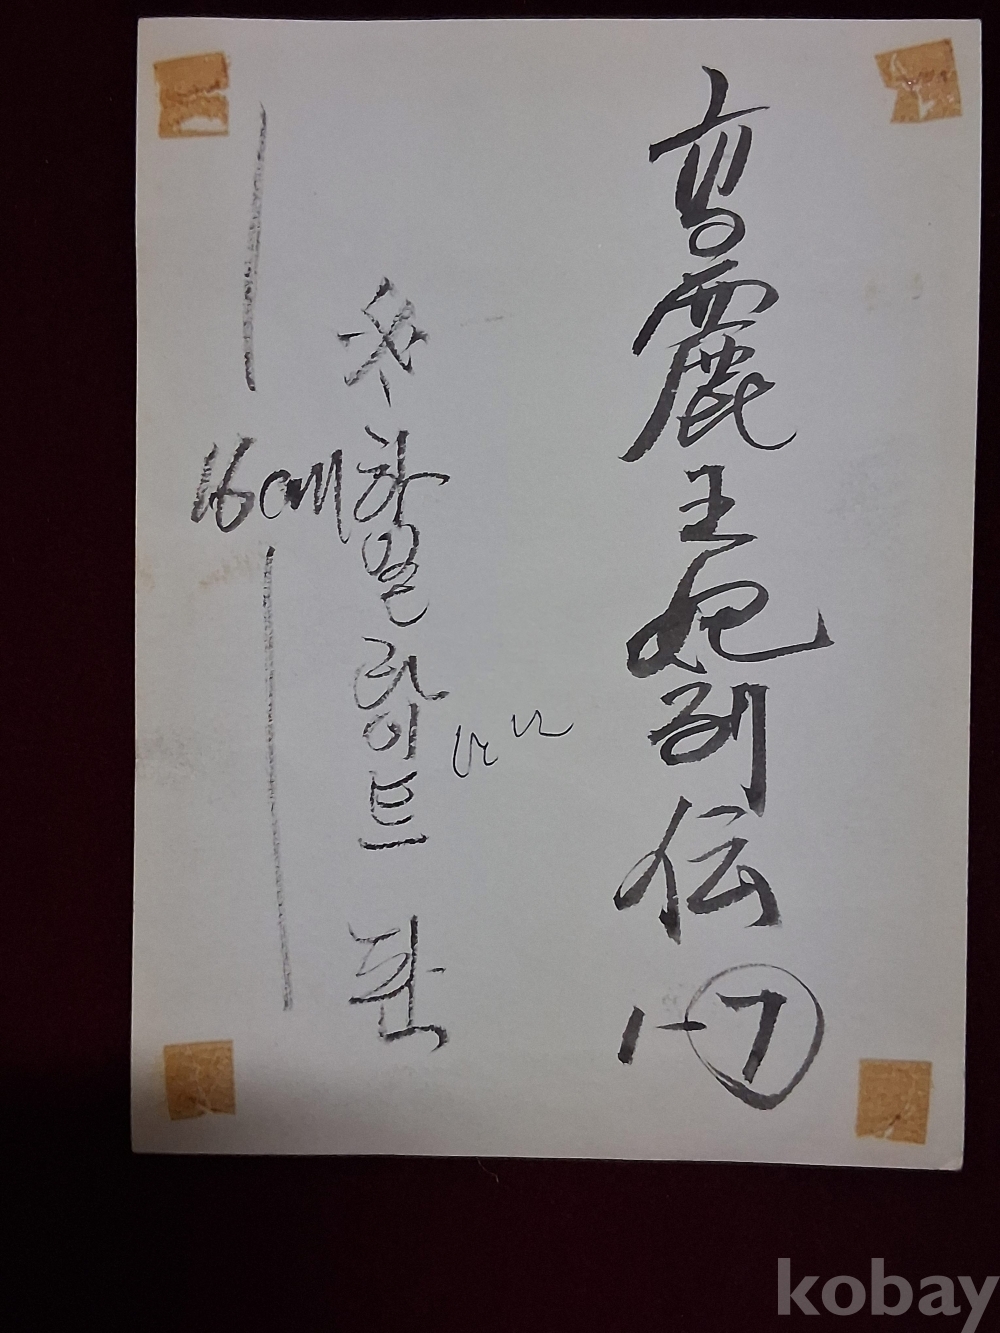 高麗王妃列伝 1-7
※ 하일라이트 판
16cm
kobay